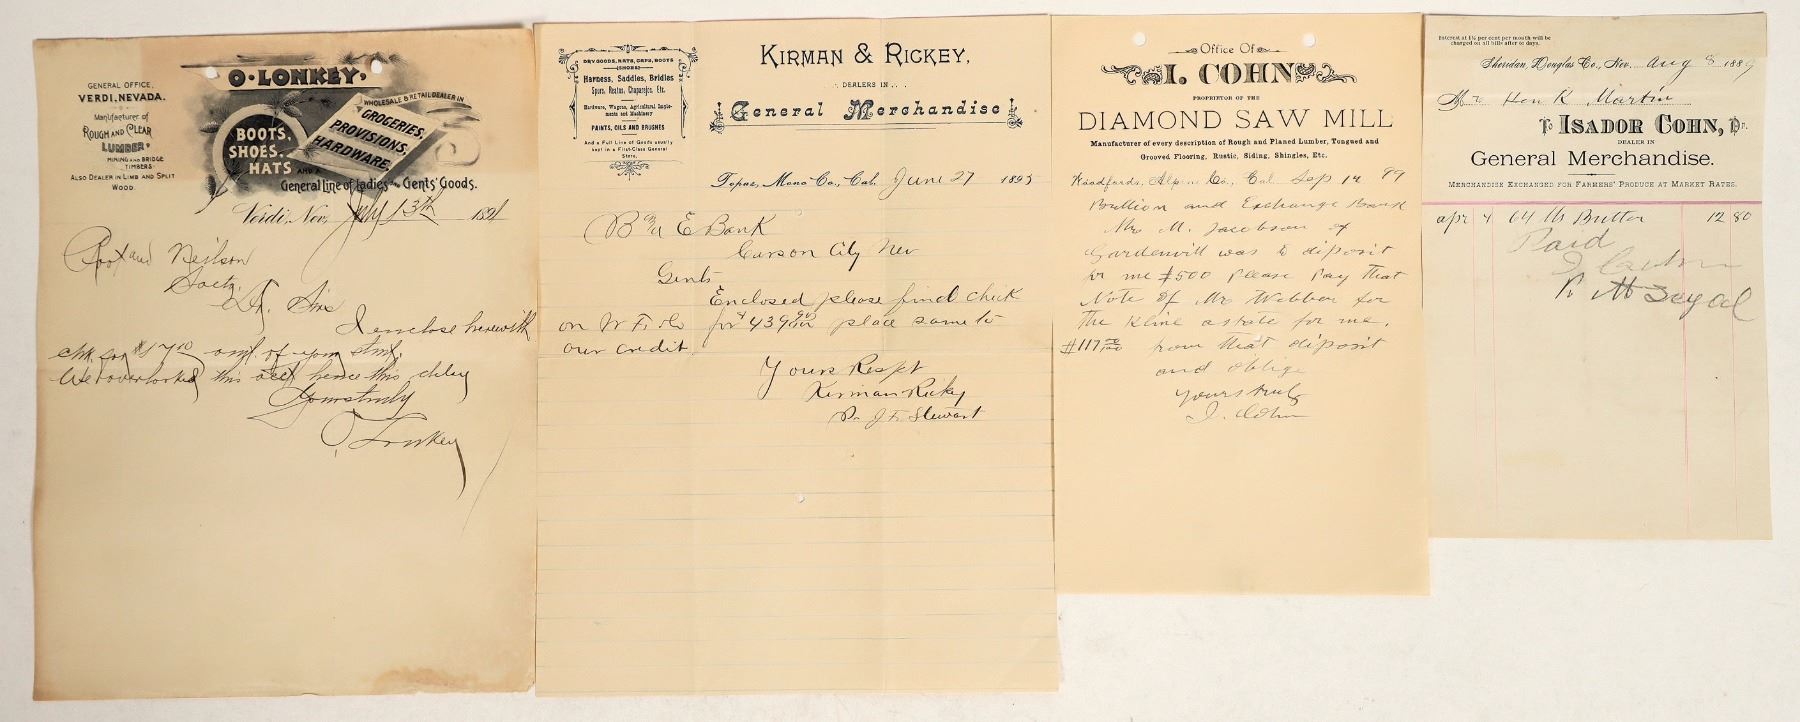 GENERAL OFFICE,
VERDI, NEVADA.
Manufacturer of
ROUGH AND CLEAR
LUMBER,
MINING AND BRIDGE
TIMBERS.
ALSO DEALER IN LIMB AND SPLIT
WOOD.
O. LONKEY,
WHOLESALE & RETAIL DEALER IN
GROCERIES,
PROVISIONS,
HARDWARE,
BOOTS,
SHOES,
HATS
AND A
General Line of Ladies and Gents' Goods.
Verdi, Nev., July 13th 1891
Root and Neilson
Sacto.
Dr. Sirs
I enclose herewith
chk for $17.10 amt. of your stmt.
We overlooked this acct hence this delay
Yours truly
O. Lonkey
DRY GOODS, HATS, CAPS, BOOTS
(SHOES)
Harness, Saddles, Bridles
Spurs, Reatas, Chaparejos, Etc.
Hardware, Wagons, Agricultural Imple-
ments and Machinery
PAINTS, OILS AND BRUSHES
And a Full Line of Goods usually
kept in a First-Class General
Store.
KIRMAN & RICKEY,
DEALERS IN
General Merchandise
Topaz, Mono Co., Cal. June 27 1895
B & E Bank
Carson City Nev
Gents
Enclosed please find check
on W F & Co for $439.90 place same to
our credit.
Yours Respt
Kirman Ricky
Pr J. F. Stewart
Office Of
I. COHN
PROPRIETOR OF THE
DIAMOND SAW MILL
Manufacturer of every description of Rough and Planed Lumber, Tongued and
Grooved Flooring, Rustic, Siding, Shingles, Etc.
Woodfords, Alpine Co., Cal Sep 14 99
Bullion and Exchange Bank
Mrs M. Jacobson of
Gardenvill was to deposit
for me $500 Please Pay that
Note of Mr Webber for
the Kline astate for me.
$117 from that diposit
and oblige
yours truly
I. Cohn
Interest at 1½ per cent per month will be
charged on all bills after 60 days.
Sheridan, Douglas Co., Nev. Aug 8 1889
Mr Hen K Martin
To ISADOR COHN, Dr.
DEALER IN
General Merchandise.
MERCHANDISE EXCHANGED FOR FARMERS' PRODUCE AT MARKET RATES.
apr 4 64 lbs Butter 12 80
Paid
I Cohn